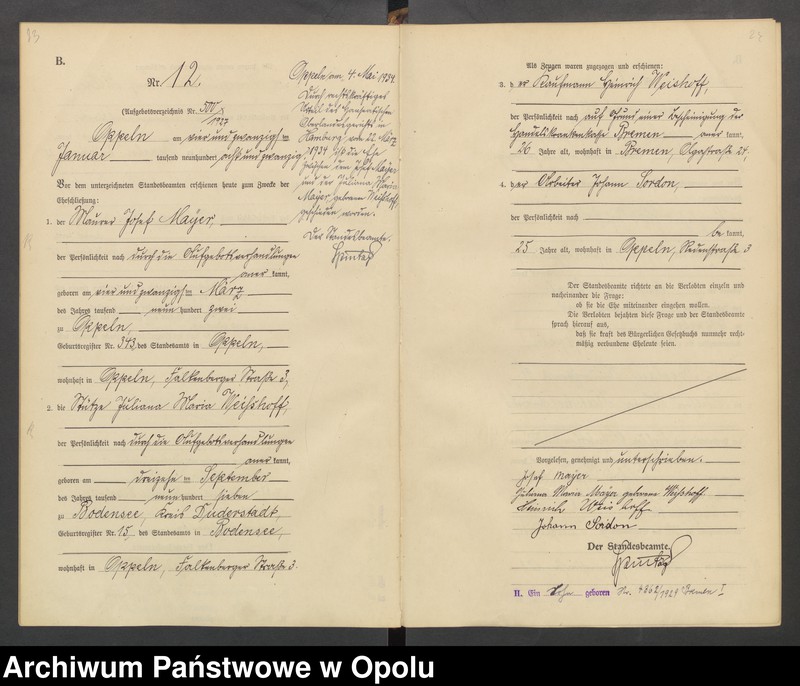 B.
Nr. 12.
(Aufgebotsverzeichnis Nr. 500/1927
Oppeln am vier und zwanzigsten
Januar tausend neunhundert acht und zwanzig
Vor dem unterzeichneten Standesbeamten erschienen heute zum Zwecke der
Eheschließung:
1. der Maurer Josef Mayer,
der Persönlichkeit nach durch die Aufgebotsverhandlungen
anerkannt,
geboren am vier und zwanzigsten März
des Jahrs tausend neun hundert zwei
zu Oppeln,
Geburtsregister Nr. 343, des Standesamts in Oppeln,
wohnhaft in Oppeln, Falkenberger Straße 3,
2. die Stütze Juliana Maria Weißhoff,
der Persönlichkeit nach durch die Aufgebotsverhandlungen
anerkannt,
geboren am dreizehn September
des Jahrs tausend neun hundert sieben
zu Bodensee, Kreis Duderstadt,
Geburtsregister Nr. 15, des Standesamts in Bodensee,
wohnhaft in Oppeln, Falkenberger Straße 3.
Oppeln am 4. Mai 1934
Durch rechtskräftiges
Urteil des Hanseatischen
Oberlandgerichts in
Hamburg vom 22. März
1934 ist die Ehe
zwischen dem Josef Mayer
und der Juliana Maria
Mayer, geborene Weißhoff
geschieden worden.
Der Standesbeamte.
Als Zeugen waren zugezogen und erschienen:
3. der Kaufmann Heinrich Weishoff,
der Persönlichkeit nach auf Grund einer Bescheinigung der
Handelskrankenkasse Bremen anerkannt,
26 Jahre alt, wohnhaft in Bremen, Olgastraße 27,
4. der Arbeiter Johann Sordon,
der Persönlichkeit nach
bekannt,
25 Jahre alt, wohnhaft in Oppeln, Redenstraße 3
Der Standesbeamte richtete an die Verlobten einzeln und
nacheinander die Frage:
ob sie die Ehe miteinander eingehen wollen.
Die Verlobten bejahten diese Frage und der Standesbeamte
sprach hierauf aus,
daß sie kraft des Bürgerlichen Gesetzbuchs nunmehr recht-
mäßig verbundene Eheleute seien.
Vorgelesen, genehmigt und unterschrieben.
Josef Mayer
Juliana Maria Mayer geborene Weißhoff.
Heinrich Weishoff
Johann Sordon
Der Standesbeamte.
II. Ein Sohn geboren Nr. 4862/1929 Bremen I
Archiwum Państwowe w Opolu